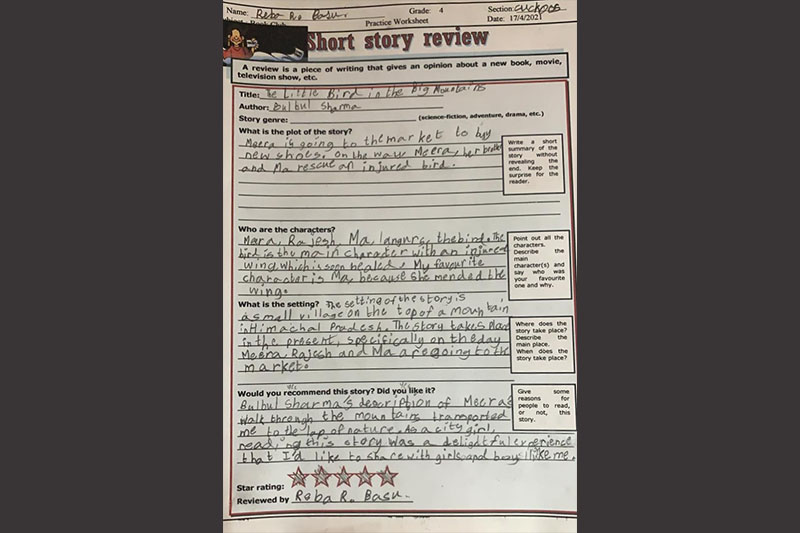 Name: Reba R. Basu. Grade: 4 Section: Cuckoos
Book Club Practice Worksheet Date: 17/4/2021
Short story review
A review is a piece of writing that gives an opinion about a new book, movie,
television show, etc.
Title: The Little Bird in the Big Mountains
Author: Bulbul Sharma
Story genre: (science-fiction, adventure, drama, etc.)
What is the plot of the story?
Meera is going to the market to buy
new shoes. On the way Meera, her brother
and Ma rescue an injured bird.
Write a short
summary of the
story without
revealing the
end. Keep the
surprise for the
reader.
Who are the characters?
Mara, Rajesh, Ma, langurs, the bird. The
bird is the main character with an injured
wing, which is soon healed. My favourite
character is Ma, because she mended the
wing.
Point out all the
characters.
Describe the
main
character(s) and
say who was
your favourite
one and why.
What is the setting? The setting of the story is
a small village on the top of a mountain
in Himachal Pradesh. The story takes place
in the present, specifically on the day
Meera, Rajesh and Ma are going to the
market.
Where does the
story take place?
Describe the
main place.
When does the
story take place?
Would you recommend this story? Did you like it?
Bulbul Sharma's description of Meera's
walk through the mountains transported
me to the lap of nature. As a city girl,
reading this story was a delightful experience
that I'd like to share with girls and boys like me.
Give some
reasons for
people to read,
or not, this
story.
Star rating:
Reviewed by Reba R. Basu.